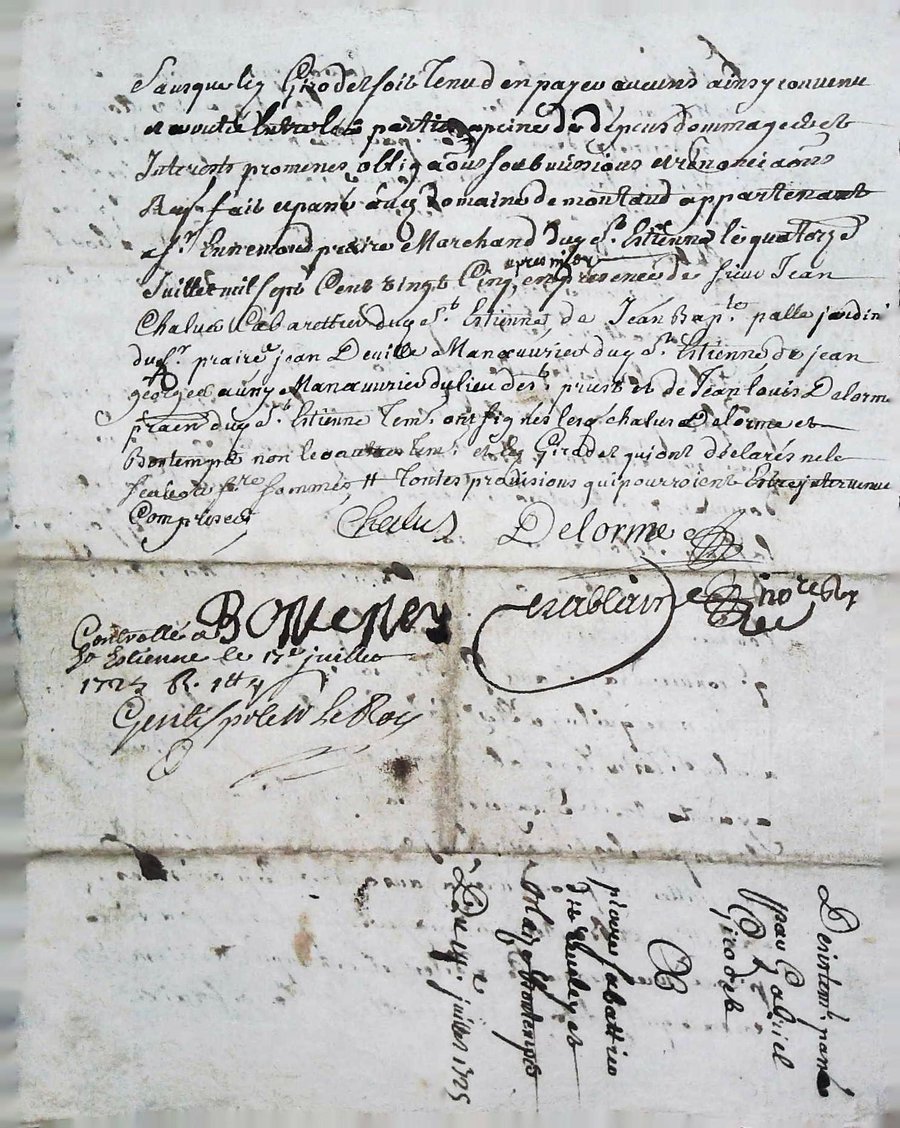 Sansque les Girodet soit Tenu d en payer aucuns ainsy convenu
et arreté Entre les parties a peine de depens dommages et
Interests promenes obliga^ons soubmissions et renonciaons
Res. fait et pasné au domaine de montaud appartenant
a s^r Ennemond praire Marchand dud s^t Estienne le quatorze
apres midy
Juillet mil sept Cent vingt Cinq en presence de sieur Jean
Chalus Cabarettier dud s^t Estienne, de Jean Bap^te palle jardini
du s^r praire, jean Deville Manœuvrier dud s^t Estienne de jean
george Manœuvrier du lieu de s^t priest et de Jean Louis Delorme
praen dud s^t Estienne Tem^s ont signés lesd chalus Delorme et
Bontemps non les autres tem^s et les Girodet qui ont declarés ne le
scavoir f^re sommés, # Toutes provisions qui pourroient Estre intervenue
Comprises
Chalus Delorme
Bontemps
Chablain no^re Roy
Controllé a
S^t Estienne le 17^e juillet
1725 R.
Le Roy
Desistem^t pasné
par Gabriel
Girodet
A
pierre sabattier
dit
Blaize Bontemps
Du 14^e juillet 1725